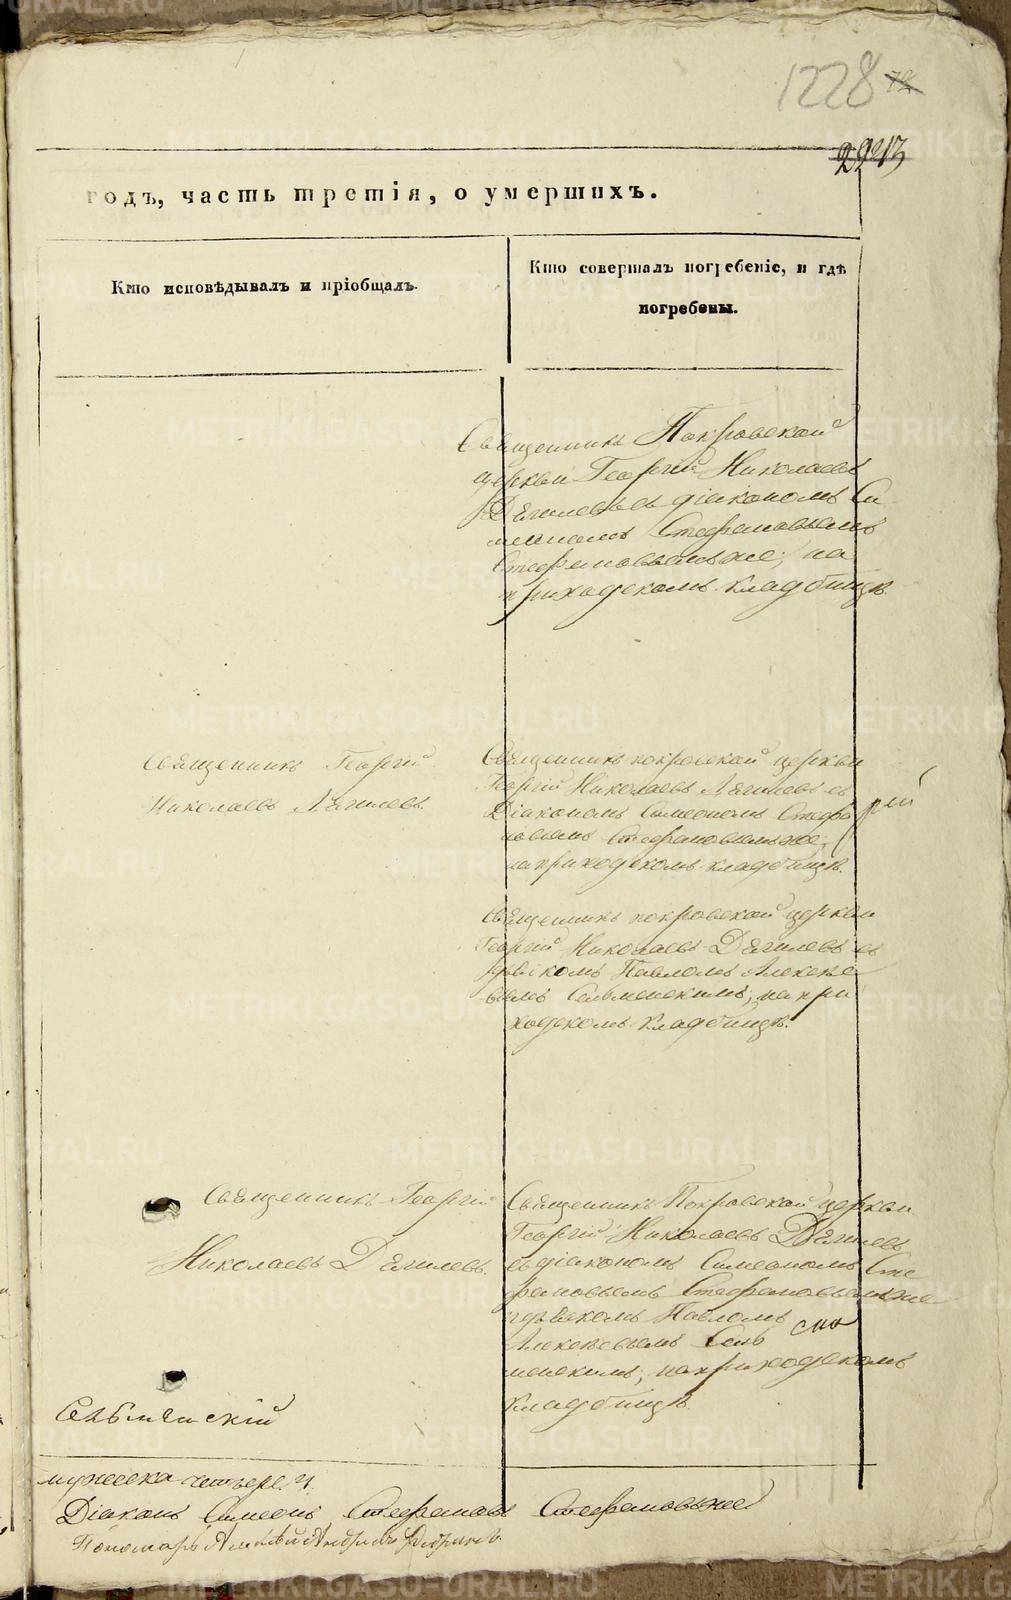 1228
годъ, часть третія, о умершихъ.
Кто исповѣдывалъ и пріобщалъ.
Кто совершалъ погребеніе, и гдѣ
погребены.
Священникъ Покровской
церкви Георгій Николаевъ
Дягилевъ съ діакономъ Си
меономъ Стефановымъ
Стефановымъ же, на
приходскомъ кладбищѣ.
Священникъ Георгій
Николаевъ Дягилевъ.
Священникъ покровской церкви
Георгій Николаевъ Дягилевъ съ
Діакономъ Симеономъ Стефа
новымъ Стефановымъ же,
на приходскомъ кладбищѣ.
Священникъ покровской церкви
Георгій Николаевъ Дягилевъ съ
Павломъ Алексѣе
вымъ Сельменскимъ, на при
ходскомъ кладбищѣ.
Священникъ Георгій
Николаевъ Дягилевъ.
Священникъ Покровской церкви
Георгій Николаевъ Дягилевъ
съ діакономъ Симеономъ Сте
фановымъ Стефановымъ же
Павломъ
Алексѣевымъ Сель
менскимъ, на приходскомъ
кладбищѣ.
Сельменскій
мужеска четыре. 4.
Діаконъ Симеонъ Стефановъ Стефановъ же
Пономарь
METRIKI.GASO-URAL.RU